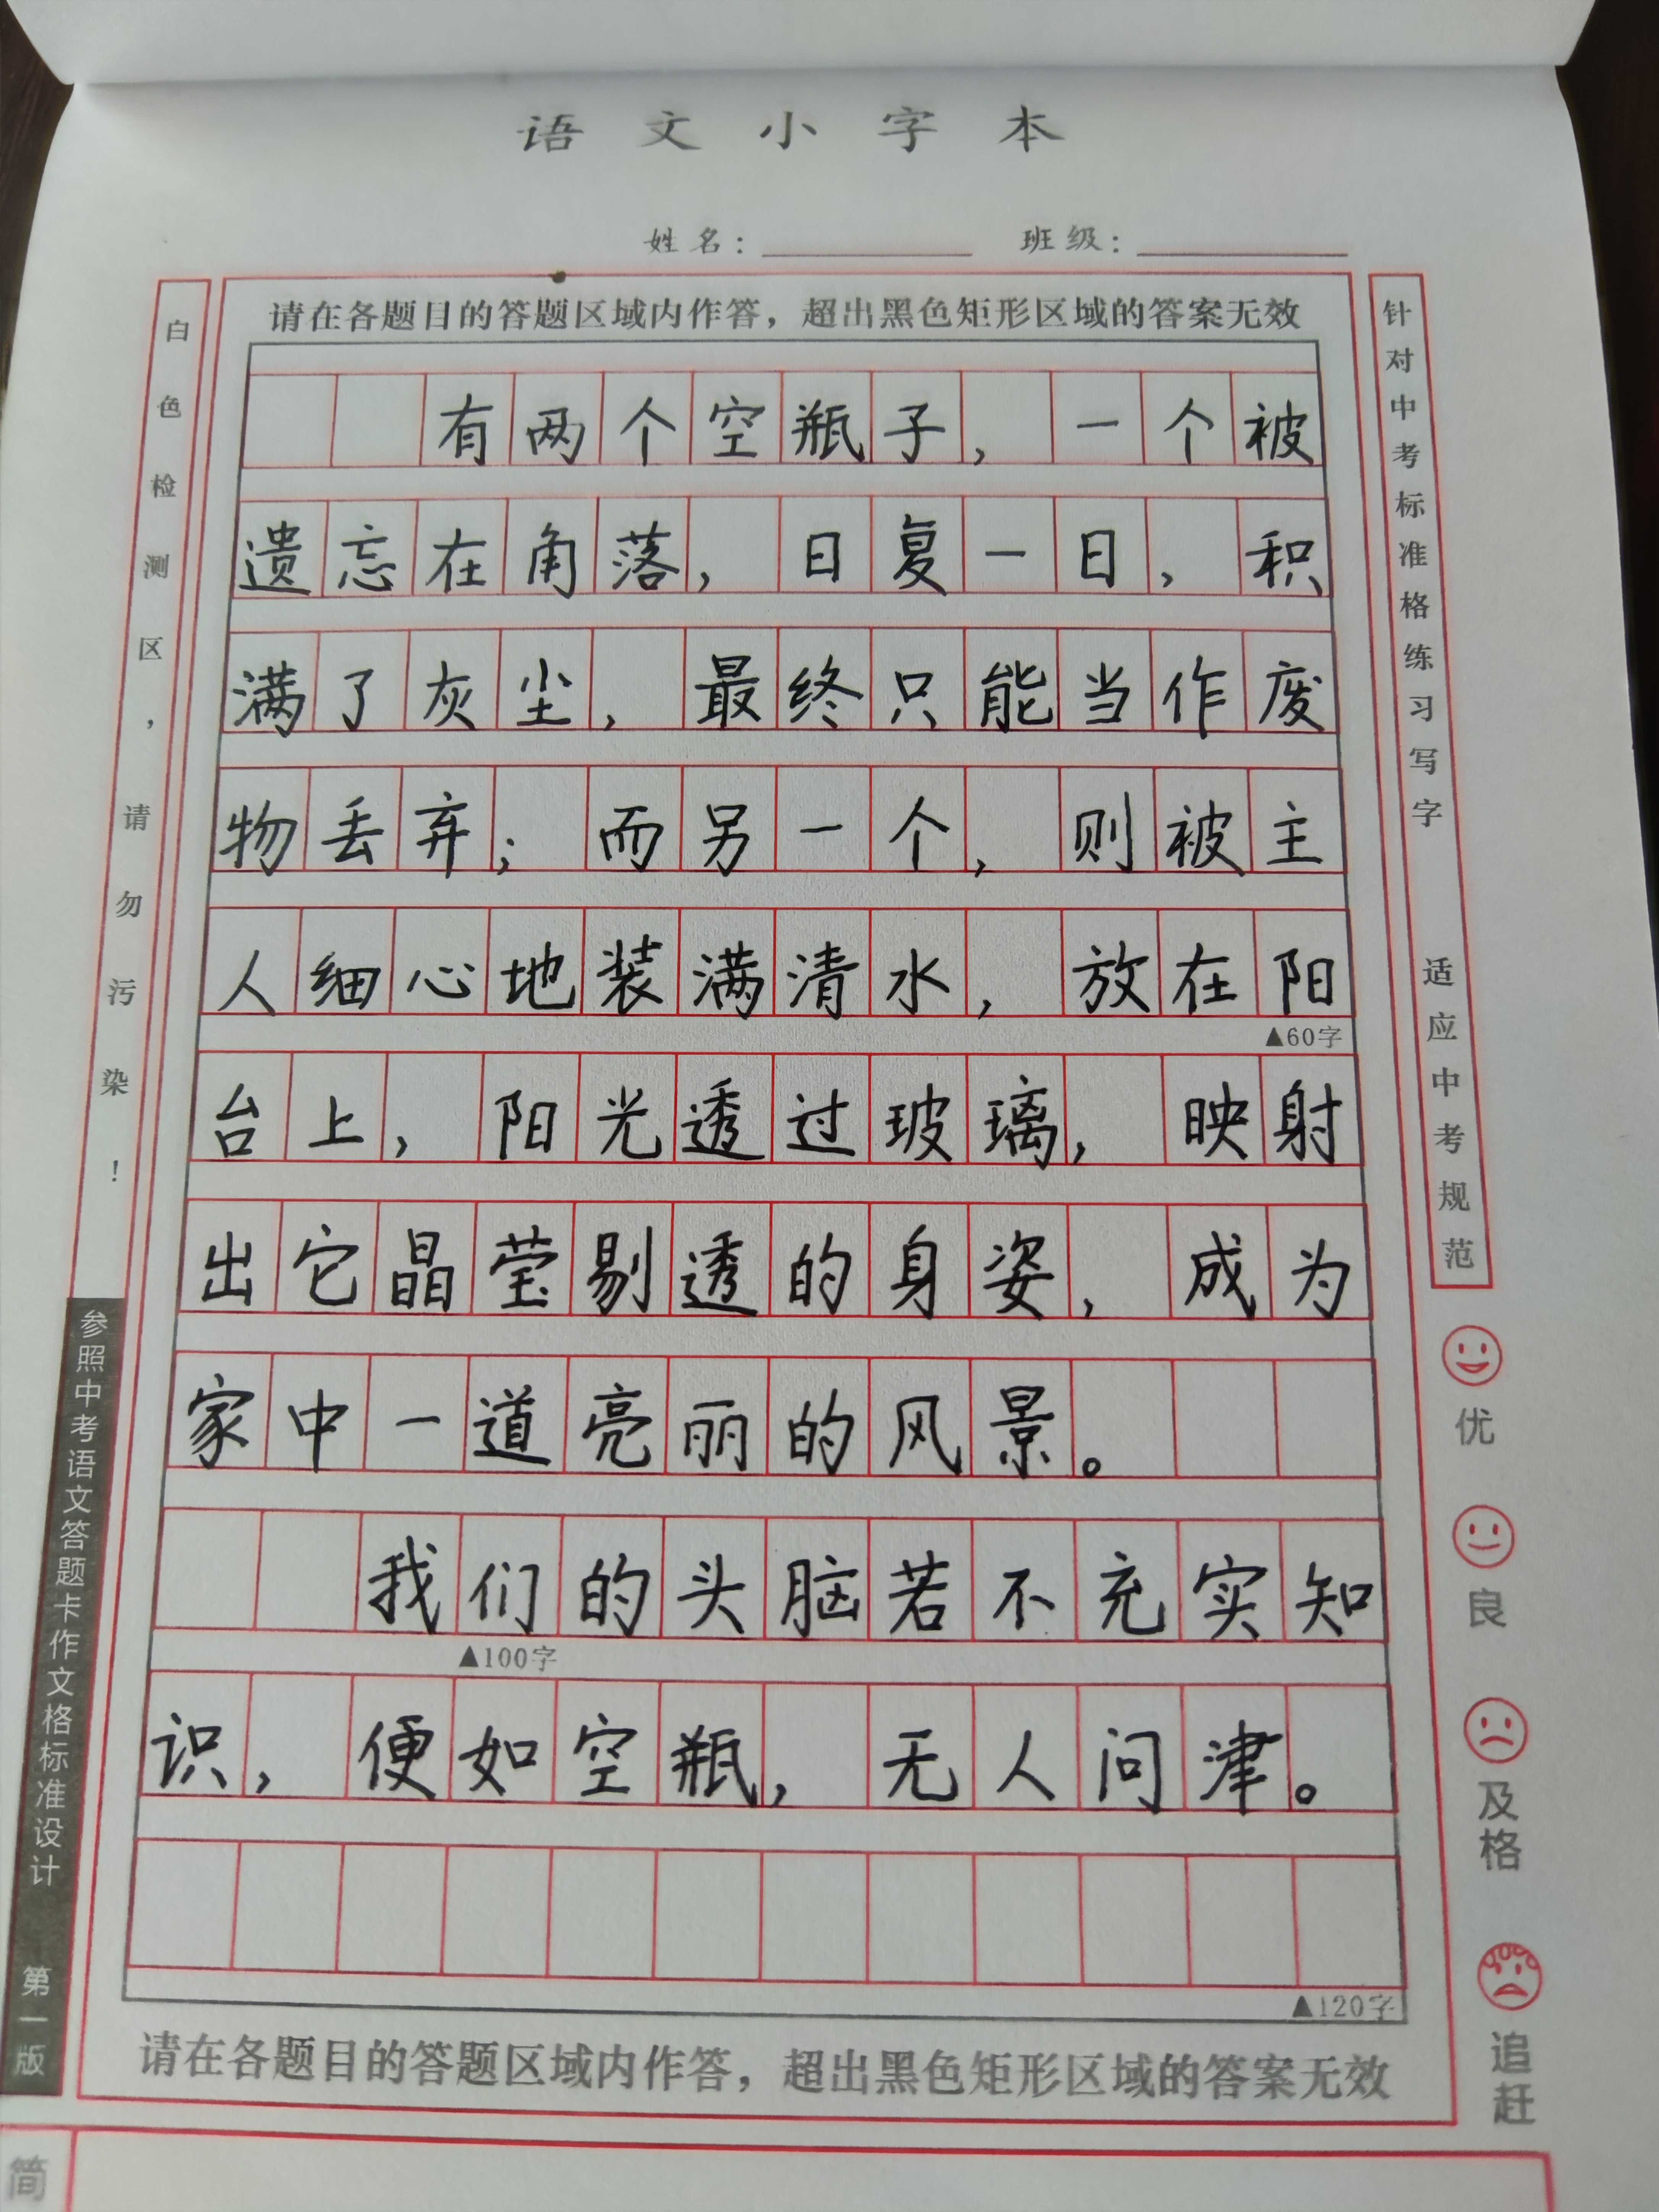 语文小字本
姓名： 班级：
请在各题目的答题区域内作答，超出黑色矩形区域的答案无效
有两个空瓶子，一个被
遗忘在角落，日复一日，积
满了灰尘，最终只能当作废
物丢弃；而另一个，则被主
人细心地装满清水，放在阳
▲60字
台上，阳光透过玻璃，映射
出它晶莹剔透的身姿，成为
家中一道亮丽的风景。
我们的头脑若不充实知
▲100字
识，便如空瓶，无人问津。
▲120字
请在各题目的答题区域内作答，超出黑色矩形区域的答案无效
白色检测区，请勿污染！
参照中考语文答题卡作文格标准设计 第一版
针对中考标准格练习写字 适应中考规范
优
良
及格
追赶
简